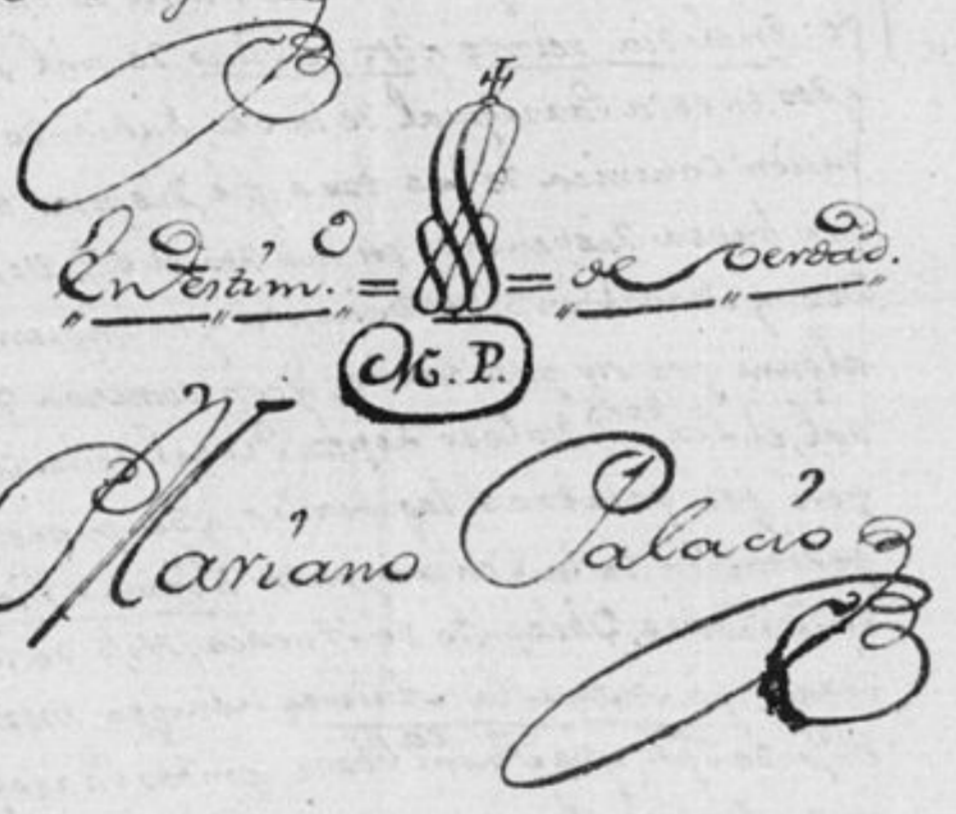 En testim. = = de verdad.
M. P.
Mariano Palacio